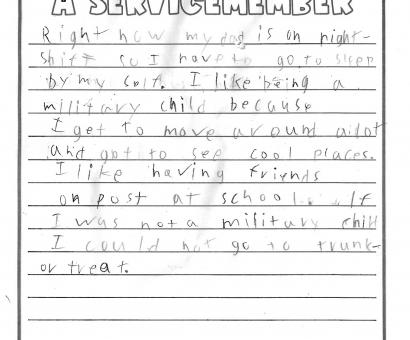 A SERVICEMEMBER
Right now my dad is on night-
shift so I have to go to sleep
by my self. I like being a
military child because
I get to move around alot
and got to see cool places.
I like having friends
on post at school. If
I was not a military chill
I could not go to trunk-
or treat.